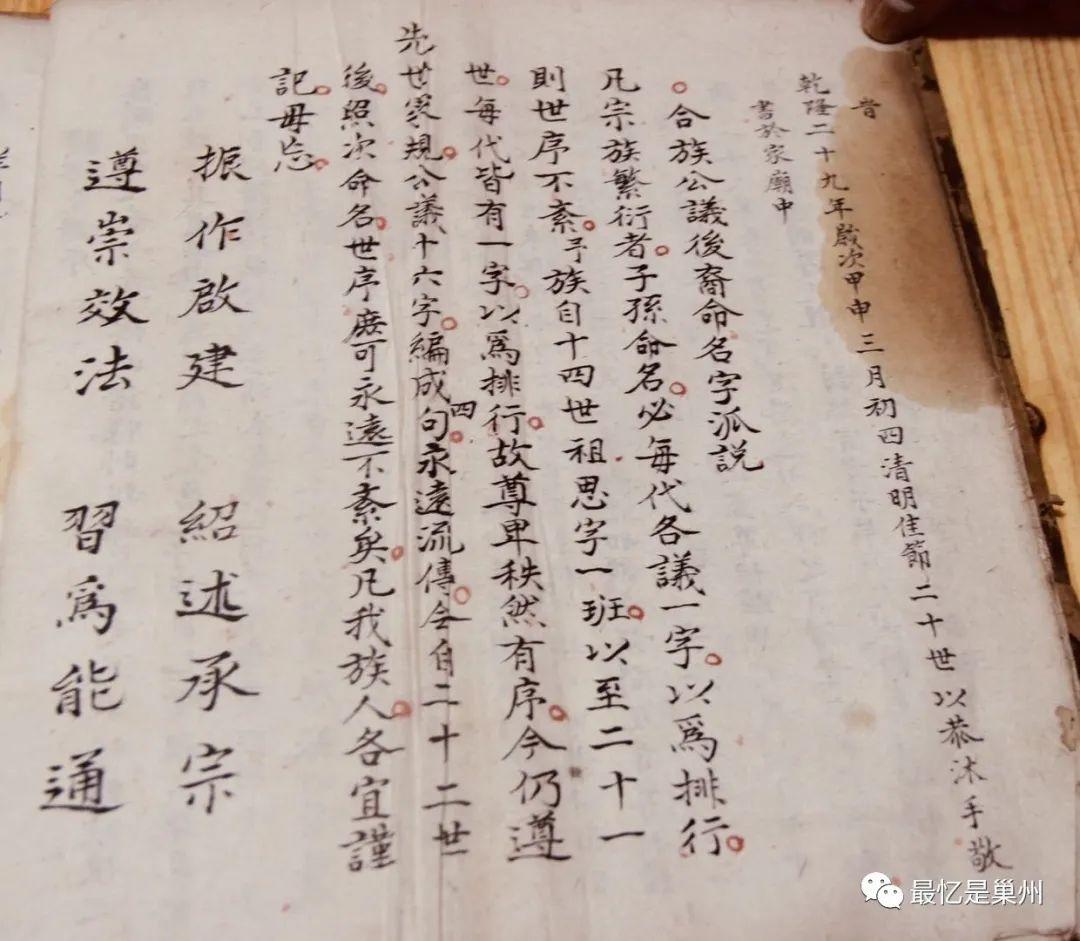 旹
乾隆二十九年歲次甲申三月初四清明佳節二十世以恭沐手敬
書於家廟中
合族公議後裔命名字派説
凡宗族繁衍者子孫命名必每代各議一字以爲排行
則世序不紊予族自十四世祖思字一班以至二十一
世每代皆有一字以爲排行故尊卑秩然有序今仍遵
先世家規公議十六字編成四句永遠流傳今自二十二世
後照次命名世序庶可永遠不紊矣凡我族人各宜謹
記毋忘
振作啟建 紹述承宗
遵崇效法 習爲能通
最忆是巢州